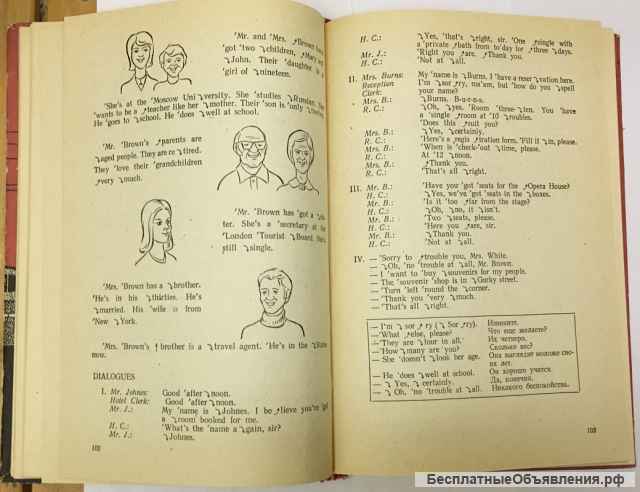 'Mr. and Mrs. Brown have
'got 'two children, Mary and
John. Their 'daughter is a
girl of nineteen.
'She's at the 'Moscow University. She 'studies Russian. She
'wants to be a teacher like her mother. Their 'son is 'only
He 'goes to school. He 'does well at school.
'Mr. 'Brown's parents are
aged people. They are retired.
They 'love their 'grandchildren
very much.
'Mr. 'Brown has 'got a
ter. She's a 'secretary at the
'London 'Tourist Board. She's
still single.
'Mrs. 'Brown has a brother.
'He's in his thirties. He's
married. His 'wife is from
'New York.
'Mrs. 'Brown's brother is a travel agent. 'He's in the
mou.
DIALOGUES
I. Mr. Johnes: Good 'afternoon.
Hotel Clerk: Good 'afternoon.
Mr. J.: My 'name is Johnes. I believe you've got
a room booked for me.
H. C.: 'What's the 'name again, sir?
Mr. J.: Johnes.
102
H. C.: Yes, 'that's right, sir. 'One single with
a 'private bath from to'day for 'three days.
Mr. J.: 'Right you are. Thank you.
H. C.: 'Not at all.
II. Mrs. Burns: My 'name is Burns, I have a reservation here.
Reception I'm 'sorry, ma'am, but 'how do you spell
Clerk: your name?
Mrs. B.: Burns. B-u-r-n-s.
R. C.: Oh, yes. Room 'three-ten. You 'have
a 'single room at '10 roubles.
'Does this suit you?
Mrs. B.: Yes, certainly.
R. C.: 'Here's a registration form. 'Fill it in, please.
Mrs. B.: 'When is 'check-out time, please.
R. C.: At '12 noon.
Mrs. B.: Thank you.
R. C.: 'That's all right.
III. Mr. B.: 'Have you 'got 'seats for the Opera House?
H. C.: Yes, we've 'got 'seats in the boxes.
Mr. B.: 'Is it 'too far from the stage?
H. C.: Oh, no, it isn't.
Mr. B.: 'Two seats, please.
H. C.: 'Here you are, sir.
Mr. B.: Thank you.
H. C.: 'Not at all.
IV. — 'Sorry to trouble you, Mrs. White.
— Oh, 'no 'trouble at all, Mr. Brown.
— I 'want to 'buy souvenirs for my people.
— The 'souvenir 'shop is in Gorky street.
— 'Turn 'left 'round the corner.
— 'Thank you 'very much.
— 'That's all right.
— I'm sorry (Sorry). Извините.
— 'What else, please? Что еще желаете?
— 'They are four in all. Их четверо.
— 'How many are you? Сколько вас?
— She 'doesn't look her age. Она выглядит моложе сво-
их лет.
— He 'does well at school. Он хорошо учится.
— Yes, certainly. Да, конечно.
— Oh, 'no 'trouble at all. Никакого беспокойства.
103
БесплатныеОбъявления.рф